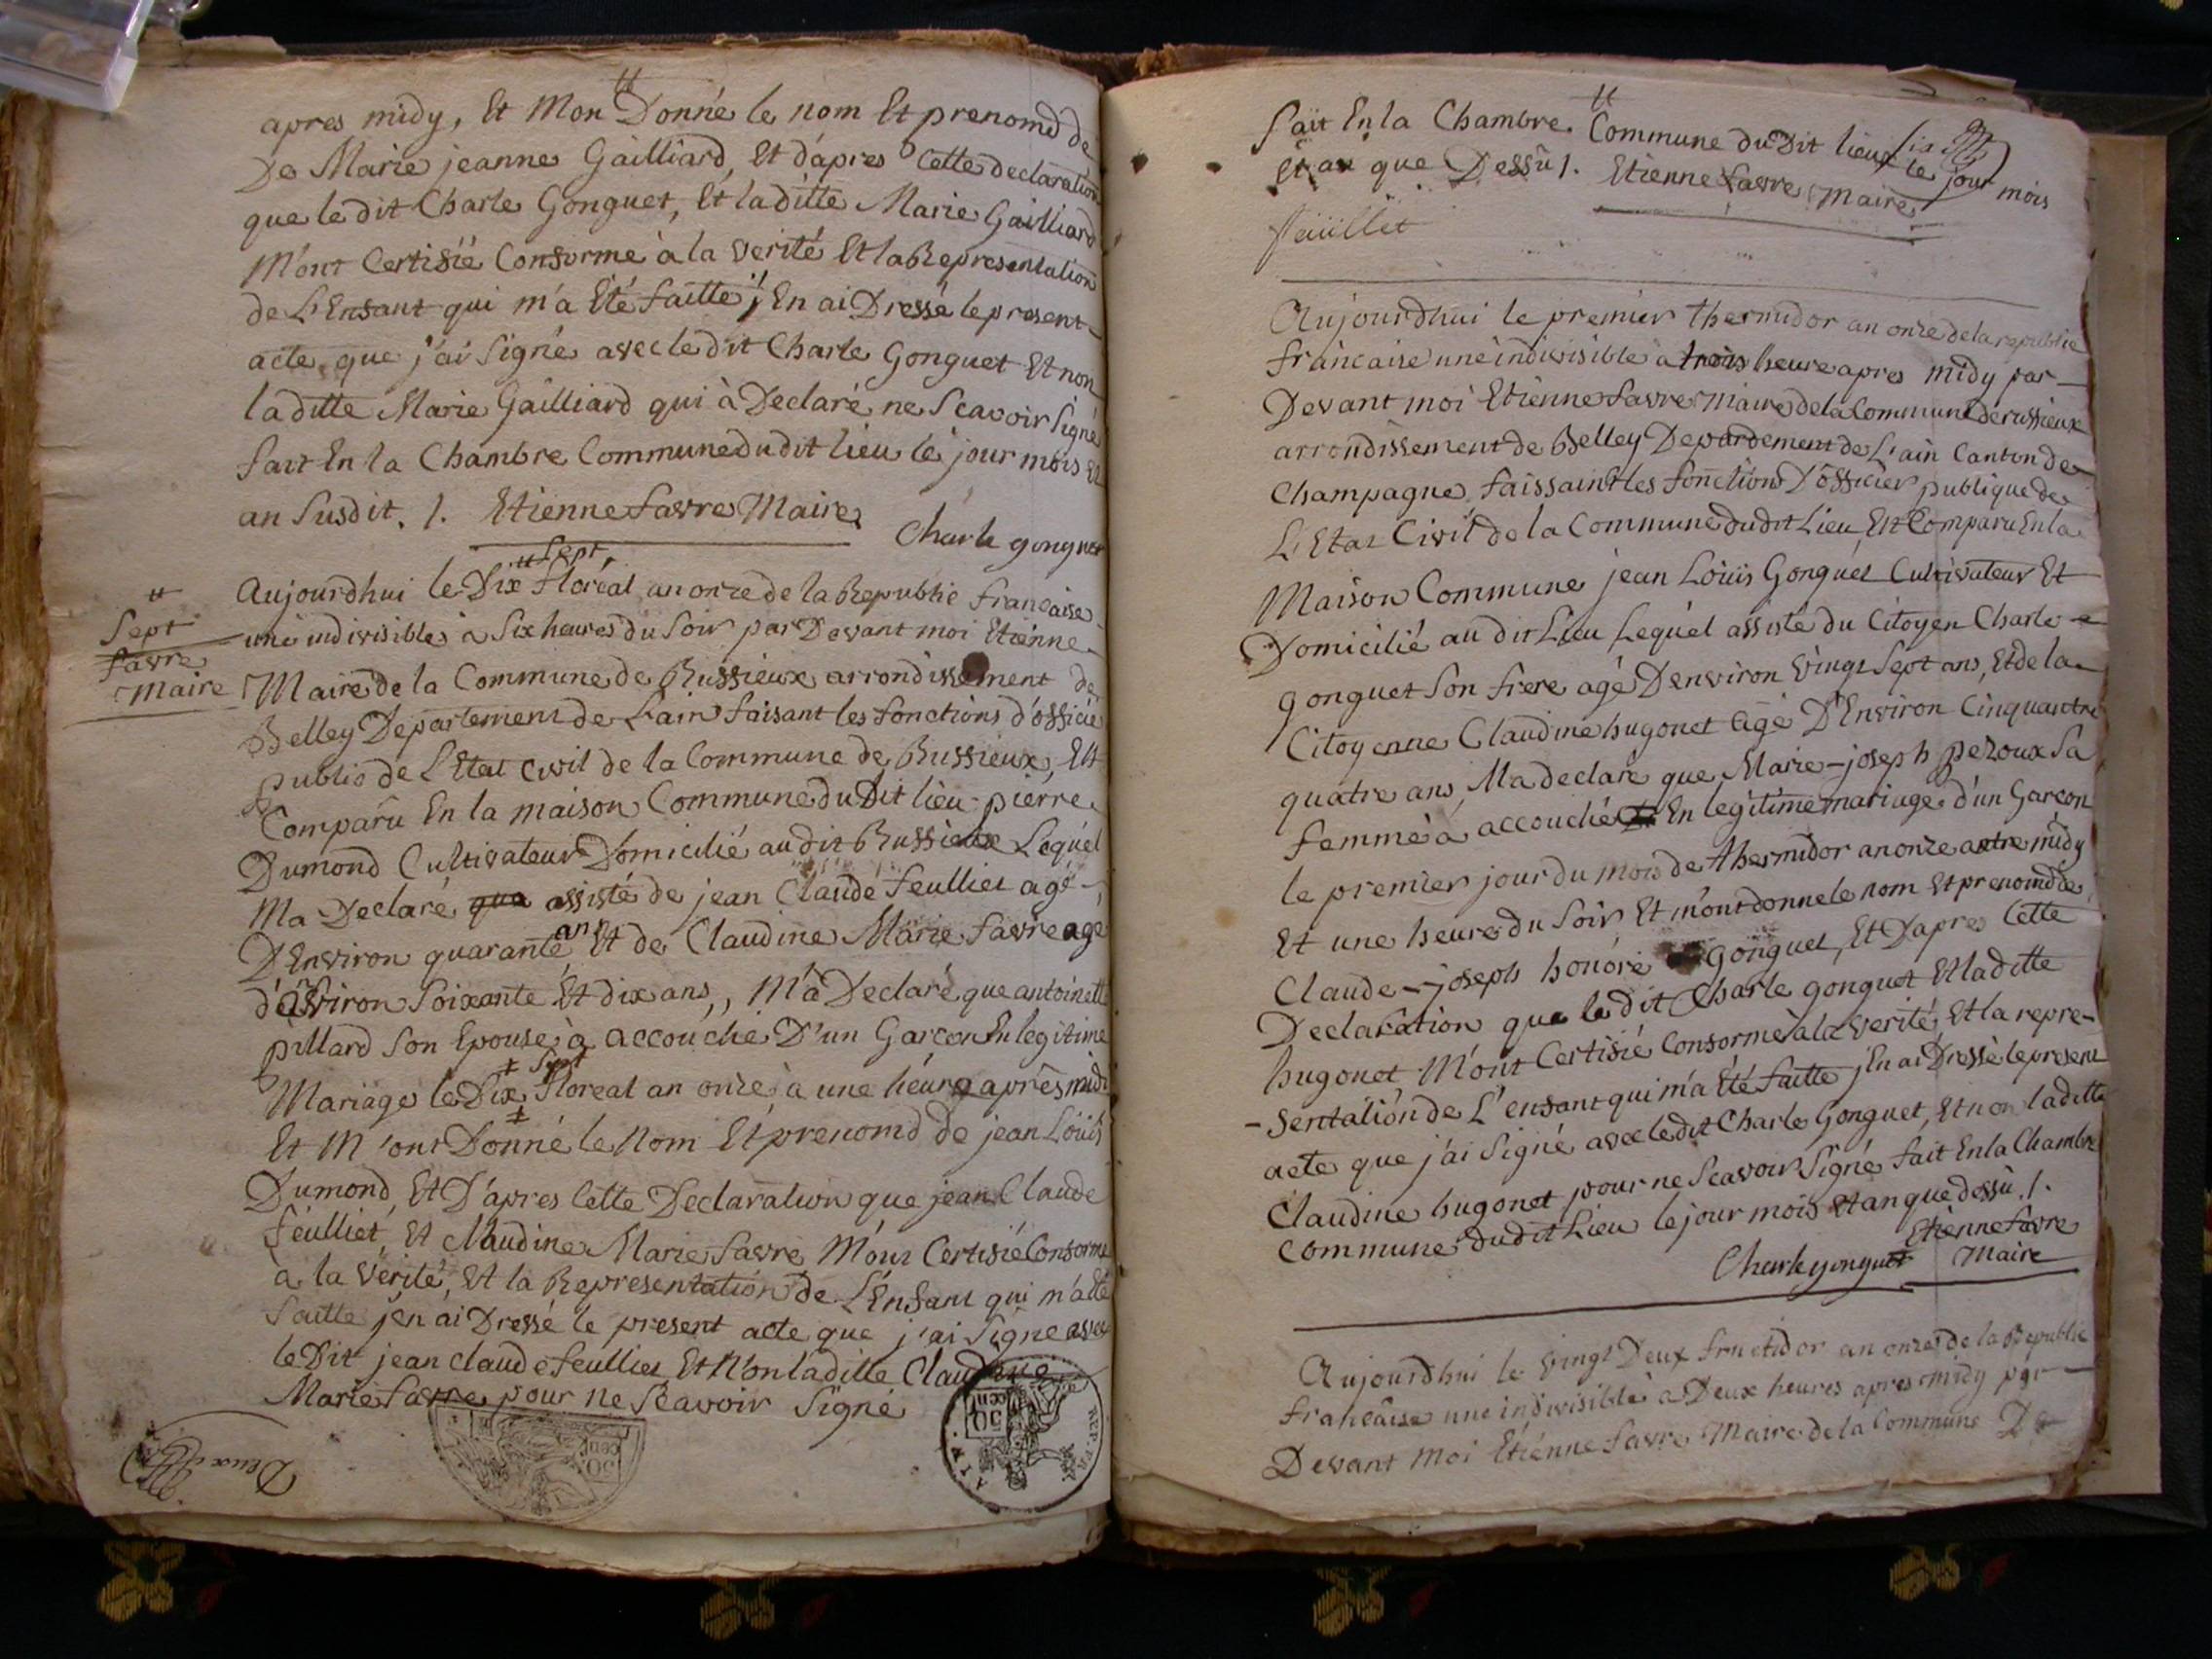 apres midy, Et Mon Donné le nom Et prenomd de
De Marie jeanne Gailliard, Et d'apres Cette declaration
que le dit Charle Gonguet, Et la ditte Marie Gailliard
M'ont Certifié Conforme à la verité Et la Representation
de L'Enfant qui m'a Eté faitte, j'En ai Dressé le present
acte que j'ai Signé avec le dit Charle Gonguet Et non
la ditte Marie Gailliard qui à Declaré ne Scavoir Signé
fait En la Chambre Commune du dit lieu le jour mois Et
an Susdit. /. Etienne favre Maire
Charle gonguet
Sept
Aujourdhui le Dix floréal an onze de la Republic francaise
une indivisible à Six heures du Soir par Devant moi Etiénne
Sept
favre
Maire
Maire de la Commune de Russieux arrondissement de
Belley Departement de L'ain faisant les fonctions d'officie
public de L'Etat Civil de la Commune de Russieux, Est
Comparu En la maison Commune du Dit lieu pierre
Dumond Cultivateur Domicilié au dit Russieux Lequél
Ma Declaré que assisté de jean Claude feulliet agé
D'Environ quarante ans Et de Claudine Marie favre agé
d'Environ Soixante Et dix ans,, M'a Declaré que antoinette
pillard Son Epouse à accouché D'un Garcon En legitime
Sept
Mariage le Dix Floreal an onze à une héure après midi
Et M'ont Donné le Nom Et prenomd de jean Louis
Dumond, Et D'apres Cette Declaration que jean Claude
feulliet, Et Claudine Marie favre M'ont Certifié Conforme
à la Vérité, Et la Representation de L'Enfant qui m'a Eté
faitte j'en ai Dressé le present acte que j'ai Signé avec
le Dit jean Claude feulliet Et Non la ditte Claudine
Marie favre pour ne Scavoir Signé
Deux
50
cent
50
cent
REP. FRA
AIN
fait En la Chambre Commune du Dit lieu le jour mois
Et an que Dessû /. Etienne favre Maire
Six
feuillet
Aujourdhui le premier thermidor an onze de la republic
francaise une indivisible à trois heure apres midy par
Devant moi Etiénne favre Maire de la Commune de russieux
arrondissement de Belley Departement de L'ain Canton de
Champagne faissaint les fonctions D'officier publique de
L'Etat Civil de la Commune du dit Lieu, Est Comparu En la
Maison Commune jean Loüis Gonguet Cultivateur Et
Domicilié au dit Lieu Lequél assisté du Citoyen Charle
gonguet Son frere agé D'environ Vingt Sept ans, Et de la
Citoyenne Claudine hugonet agé D'Environ Cinquantre
quatre ans, Ma declaré que Marie-joseph peroux Sa
femme à accouché En legitime mariage d'un Garcon
le premier jour du mois de thermidor an onze antre midy
Et une heure du Soir Et m'ont donne le nom Et prenomd de
Claude-joseph honóré Gonguet, Et D'apres Cette
Declaration que le dit Charle gonguet Et la ditte
hugonet M'ont Certifié Conforme à la verité, Et la repre-
-Sentation de L'enfant qui m'a Eté faitte j'En ai Dressé le present
acte que j'ai Signé avec le dit Charle Gonguet, Et non la ditte
Claudine hugonet pour ne Scavoir Signé fait En la Chambre
Commune du dit Lieu le jour mois Et an que dessù. /.
Etiénne favre
Charle gonguet Maire
Aujourdhui le Vingt Deux fructidor an onze de la Republic
francaise une indivisible à Deux heures apres midy par
Devant moi Etiénne favre Maire de la Commune De